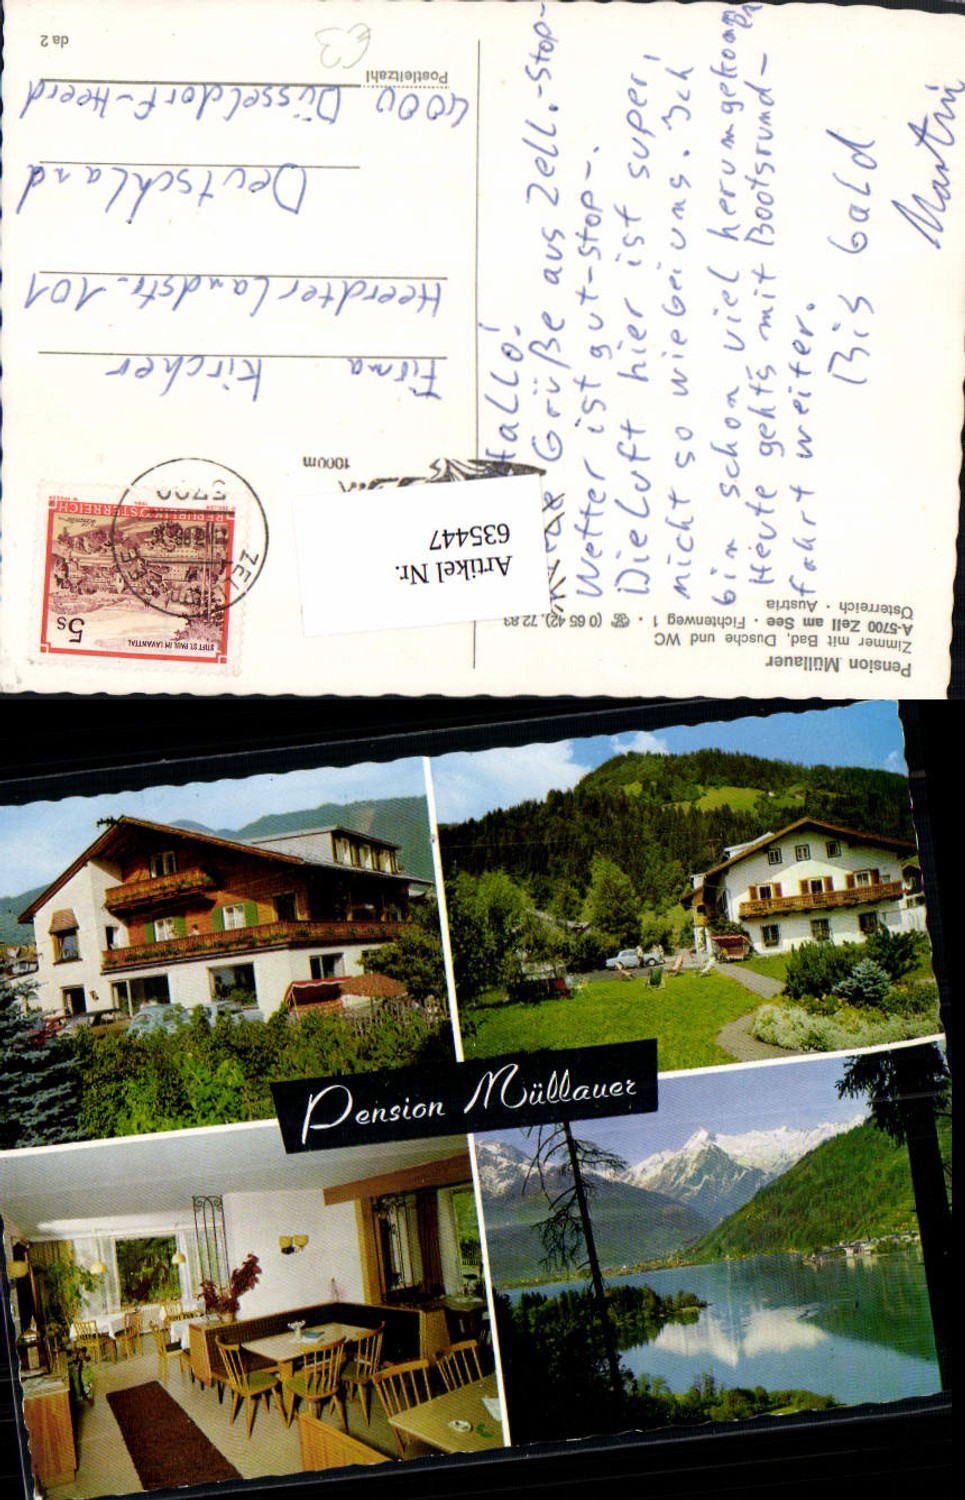 Pension Müllauer
Zimmer mit Bad, Dusche und WC
A-5700 Zell am See · Fichtenweg 1 · ☎ (0 65 42) 72 83
Österreich · Austria
Hallo!
Grüße aus Zell.-Stop-
Wetter ist gut-stop-.
Die Luft hier ist super,
nicht so wie bei uns. Ich
bin schon viel herumgekommen
Heute geht's mit Bootsrund-
fahrt weiter.
Bis bald
Martin
Artikel Nr.
635447
1000m
STIFT ST. PAUL IM LAVANTTAL
5s
REPUBLIK ÖSTERREICH
5700
ZELL AM SEE
Firma Kircher
Heerdter Landstr. 101
Deutschland
4000 Düsseldorf-Heerd
Postleitzahl
da 2
€3
Pension Müllauer